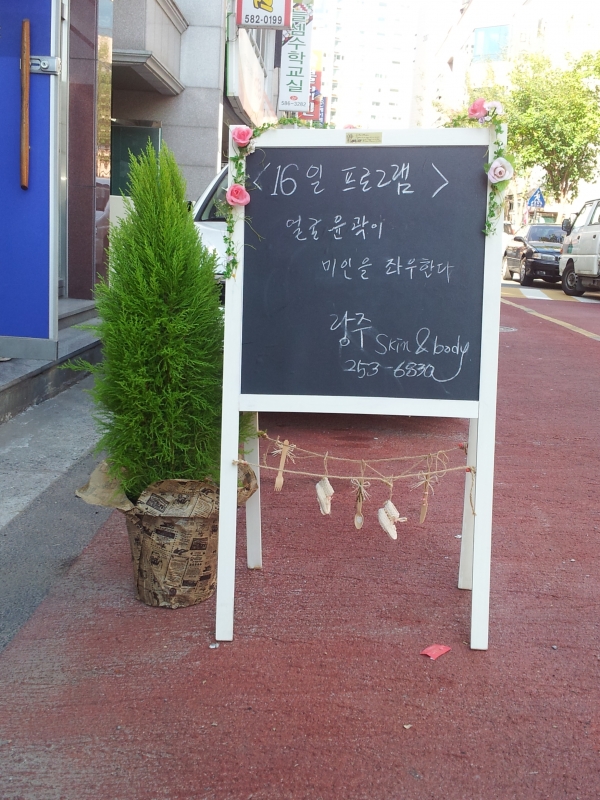 582-0199
셈수학교실
586-0262
<16일 프로그램>
얼굴 윤곽이
미인을 좌우한다
광주 Skin & body
253-6830